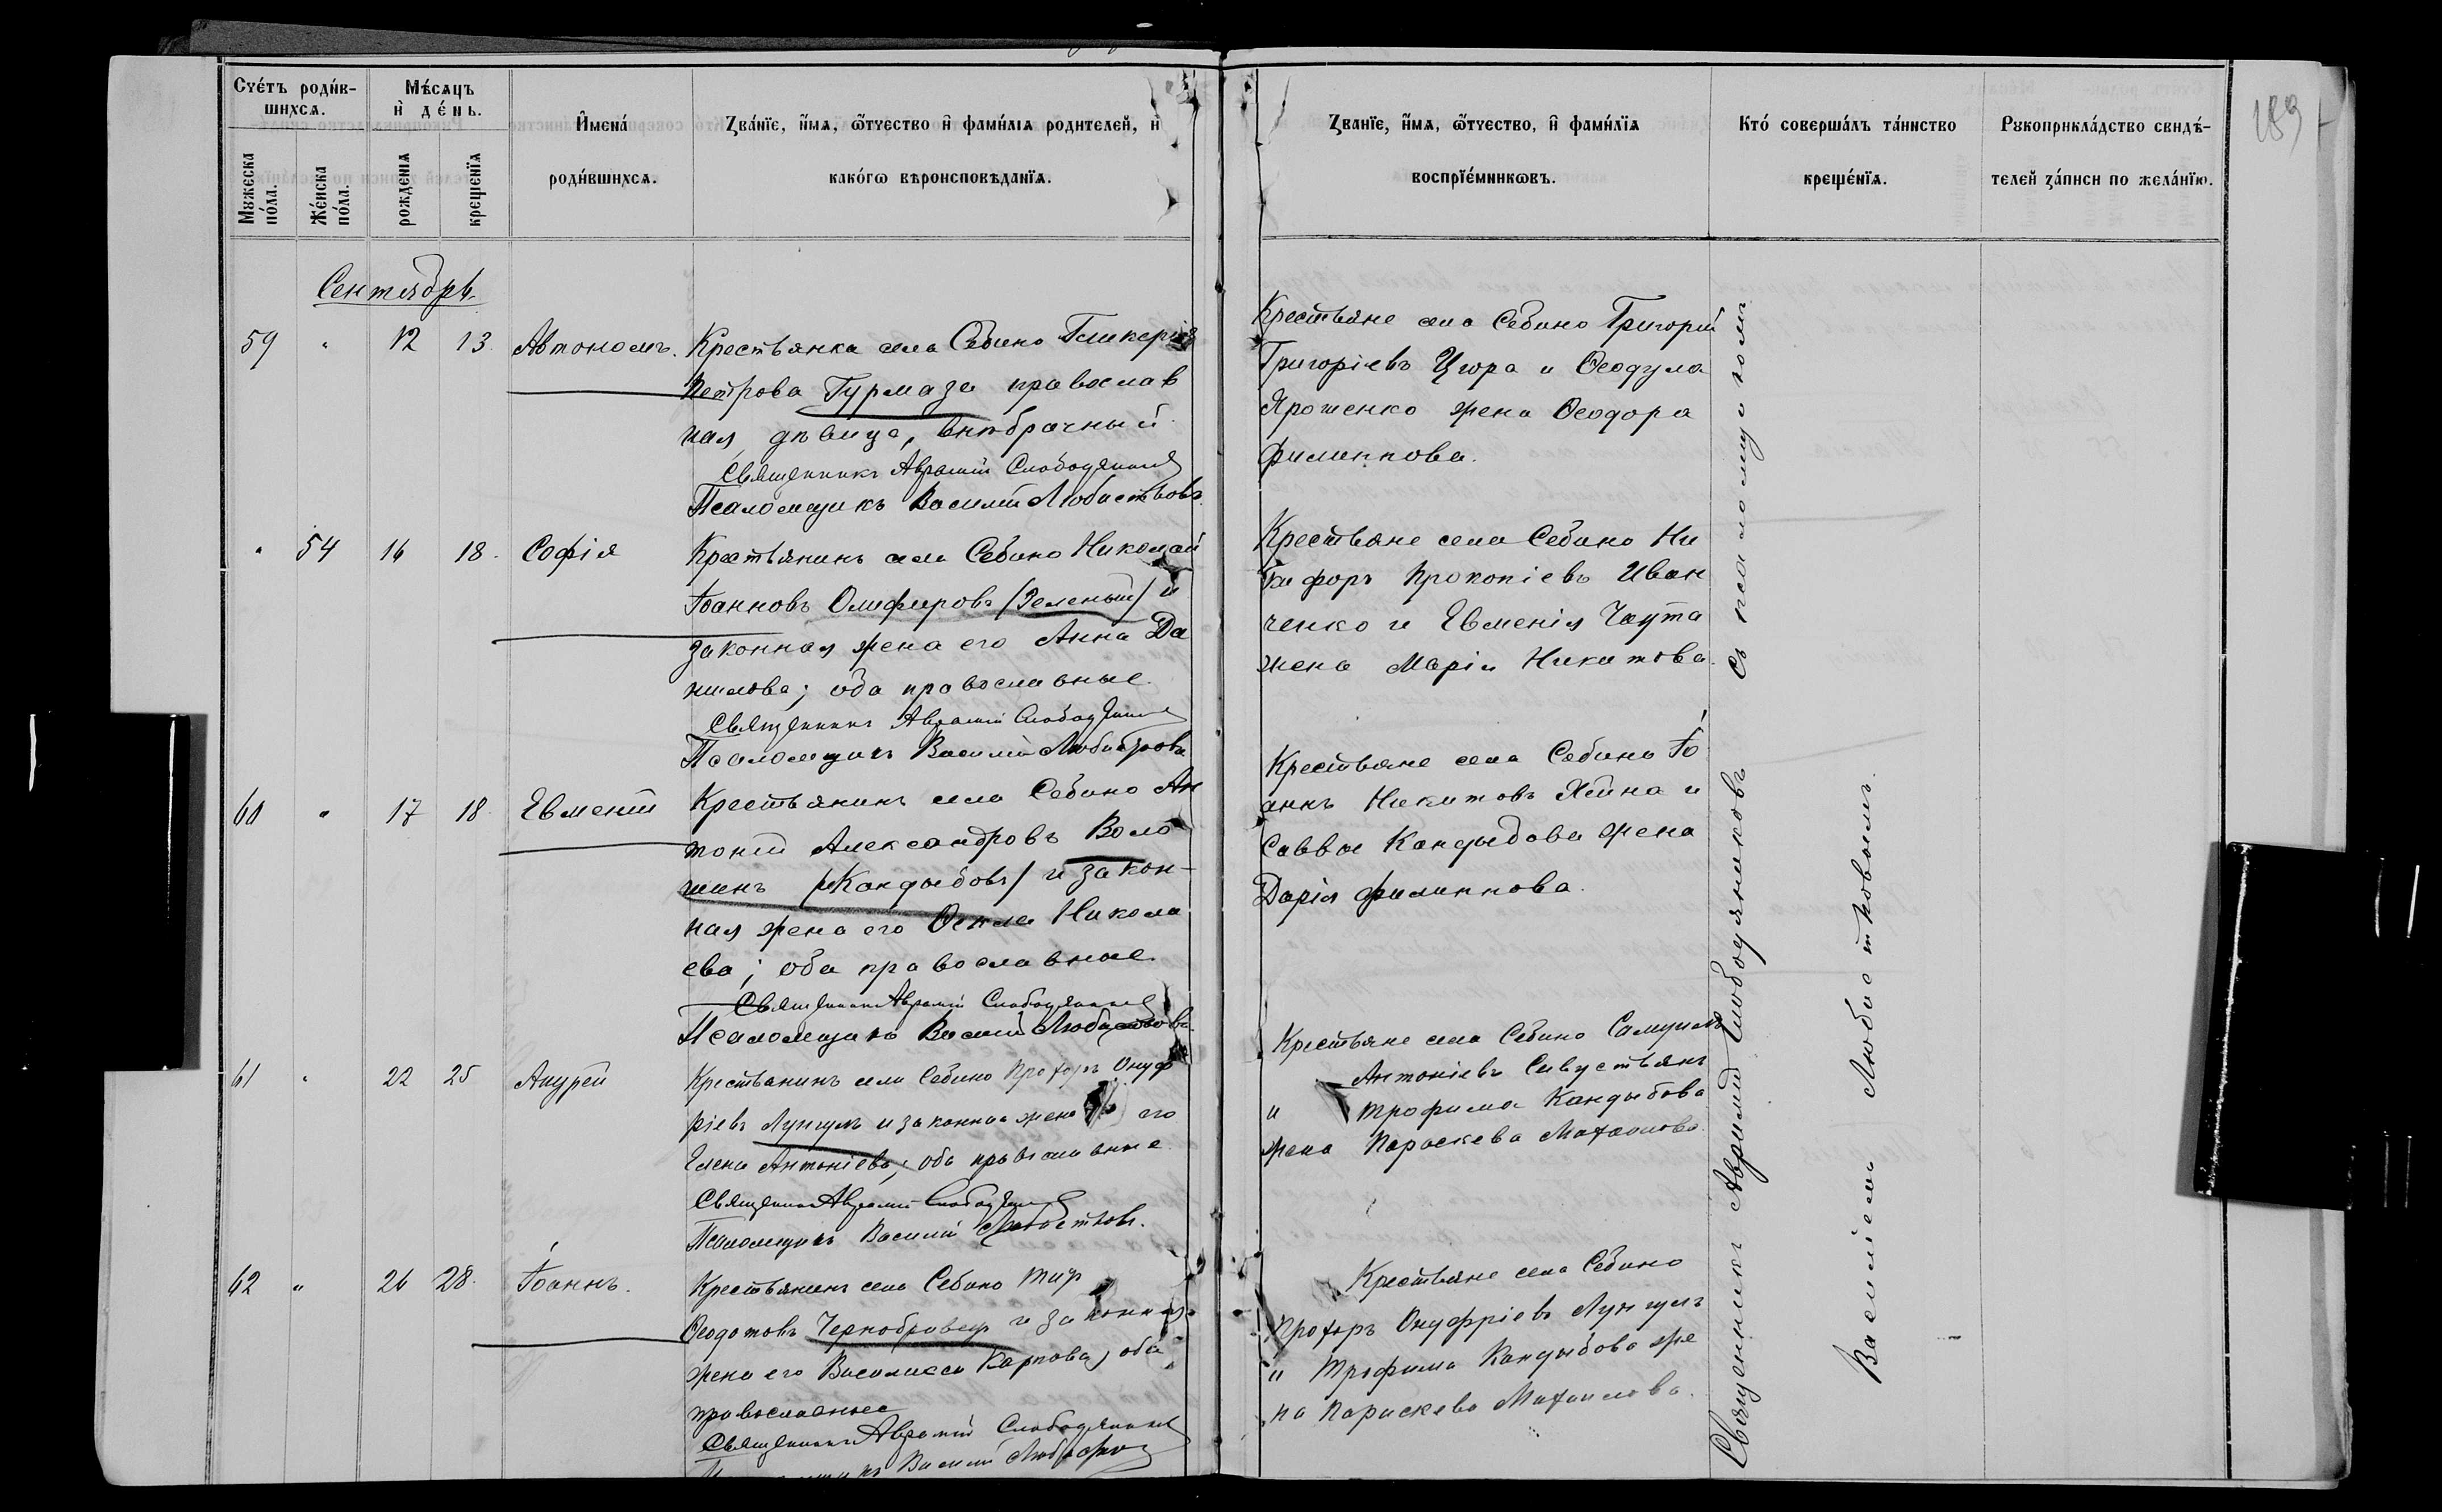 189
Счетъ родив-
шихся.
Мужеска
пола.
Женска
пола.
Мѣсяцъ
и день.
рожденія
крещенія
Имена
родившихся.
Званіе, имя, отчество и фамилія родителей, и
какого вѣроисповѣданія.
Званіе, имя, отчество, и фамилія
воспріемниковъ.
Кто совершалъ таинство
крещенія.
Рукоприкладство свидѣ-
телей записи по желанію.
Сентябрь
59 " 12 13 Автономъ.
Крестьянка села Себино Гликерія
Петрова Гурмаза православ
ная, дѣвица, внѣбрачный
Священникъ Аврамій Слободяников
Псаломщикъ Василій Любистковъ
Крестьяне села Себино Григорій
Григоріевъ Цюра и Ѳеодула
Ярошенко жена Ѳеодора
Филиппова.
" 54 16 18 Софія
Крестьянинъ села Себино Николай
Іоанновъ Олиферовъ (Зеленый) и
законная жена его Анна Да
нилова; оба православные.
Священникъ Аврамій Слободяников
Псаломщикъ Василій Любистковъ
Крестьяне села Себино Ни
кифоръ Прокопіевъ Иван
ченко и Евменія Чаута
жена Марія Никитова.
60 " 17 18 Евменій
Крестьянинъ села Себино Ан
тоній Александровъ Воло
шинъ (Кандыбовъ) и закон-
ная жена его Ѳекла Никола
ева; оба православные
Священникъ Аврамій Слободяников
Псаломщикъ Василій Любистковъ
Крестьяне села Себино Іо
аннъ Никитовъ и
Саввы Кандыбова жена
Дарія Филиппова.
61 " 22 25 Андрей
Крестьянинъ села Себино Прохоръ Онуф
ріевъ Лунгулъ и законная жена его
Елена Антоніева; оба православные
Священникъ Аврамій Слободяников
Псаломщикъ Василій Любистковъ.
Крестьяне села Себино Самуилъ
Антоніевъ Севустьянъ
и Трофима Кандыбова
жена Параскева Михаилова.
62 " 26 28 Іоаннъ.
Крестьянинъ села Себино
Ѳеодотовъ Чернобривец и законная
жена его Василисса Карпова, оба
православные
Священникъ Аврамій Слободяников
Василій Любистков
Крестьяне села Себино
Прохоръ Онуфріевъ Лунгулъ
и Трофима Кандыбова же
на Параскева Михаилова.
Священникъ Аврамій Слободяниковъ съ псаломщикомъ
Василіемъ Любистковымъ.